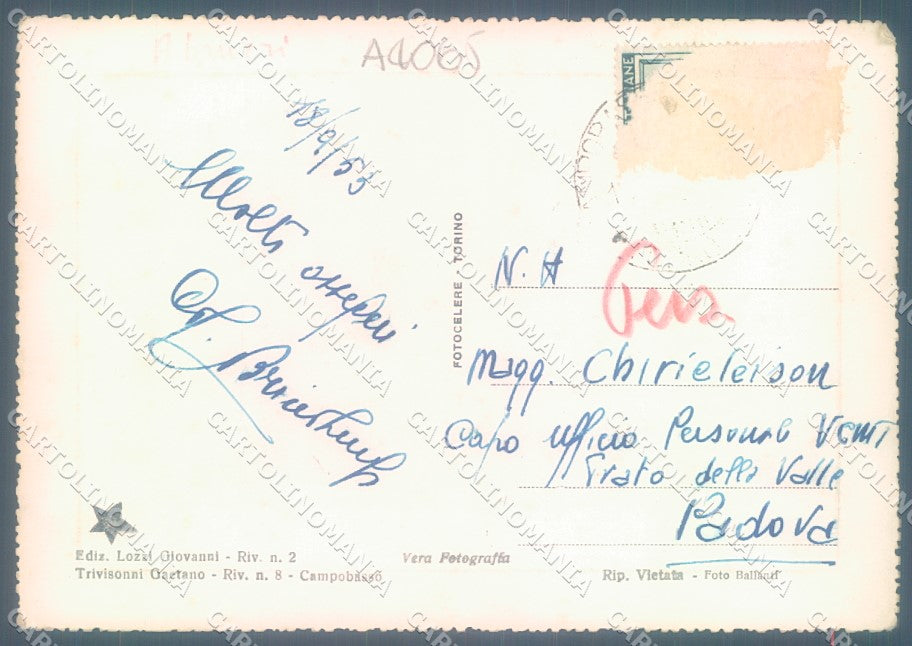 A4065
18/9/53
Molti
ossequi
N. H
Magg. Chirieleison
Capo Ufficio Personale VCMT
Prato della Valle
Padova
FOTOCELERE - TORINO
Ediz. Lozzi Giovanni - Riv. n. 2
Trivisonni Gaetano - Riv. n. 8 - Campobasso
Vera Fotografia
Rip. Vietata - Foto Ballanti
CARTOLINOMANIA